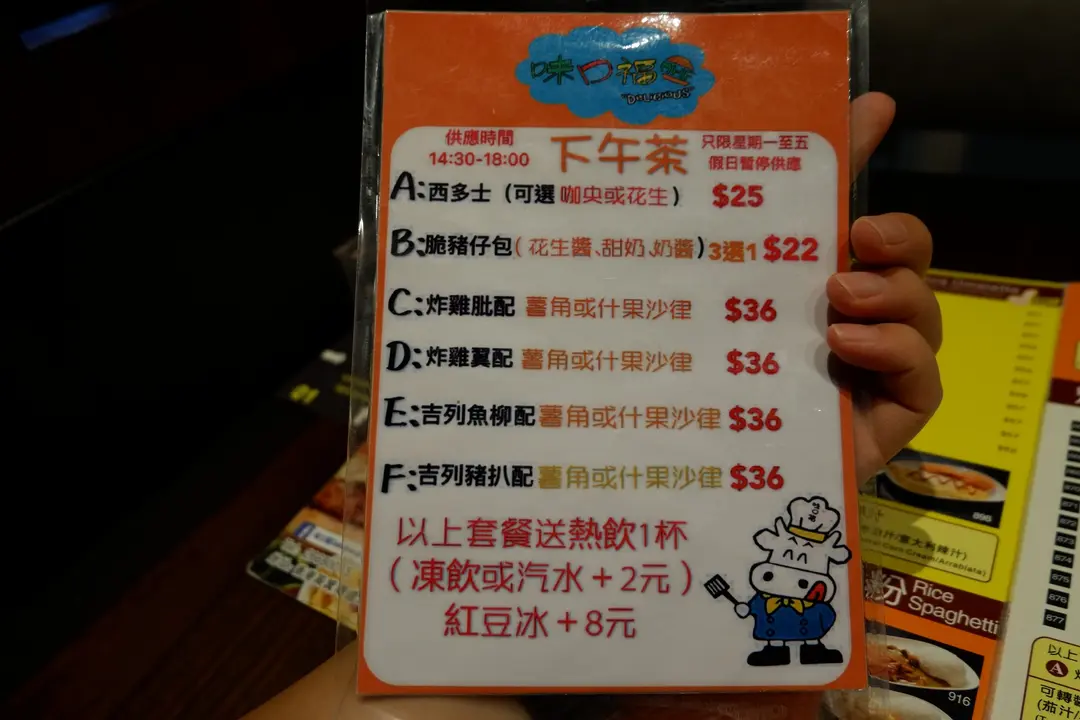 味口福
"DELICIOUS"
供應時間
14:30-18:00
下午茶
只限星期一至五
假日暫停供應
A:西多士（可選 咖央或花生） $25
B:脆豬仔包(花生醬、甜奶、奶醬)3選1 $22
C:炸雞肶配 薯角或什果沙律 $36
D:炸雞翼配 薯角或什果沙律 $36
E:吉列魚柳配薯角或什果沙律 $36
F:吉列豬扒配薯角或什果沙律 $36
以上套餐送熱飲1杯
（凍飲或汽水＋2元）
紅豆冰＋8元
896
汁/意大利辣汁)
Corn Cream/Arrabiata)
粉 Rice
Spaghetti
916
871
872
873
874
875
876
877
以上
A
可轉醬
(茄汁/